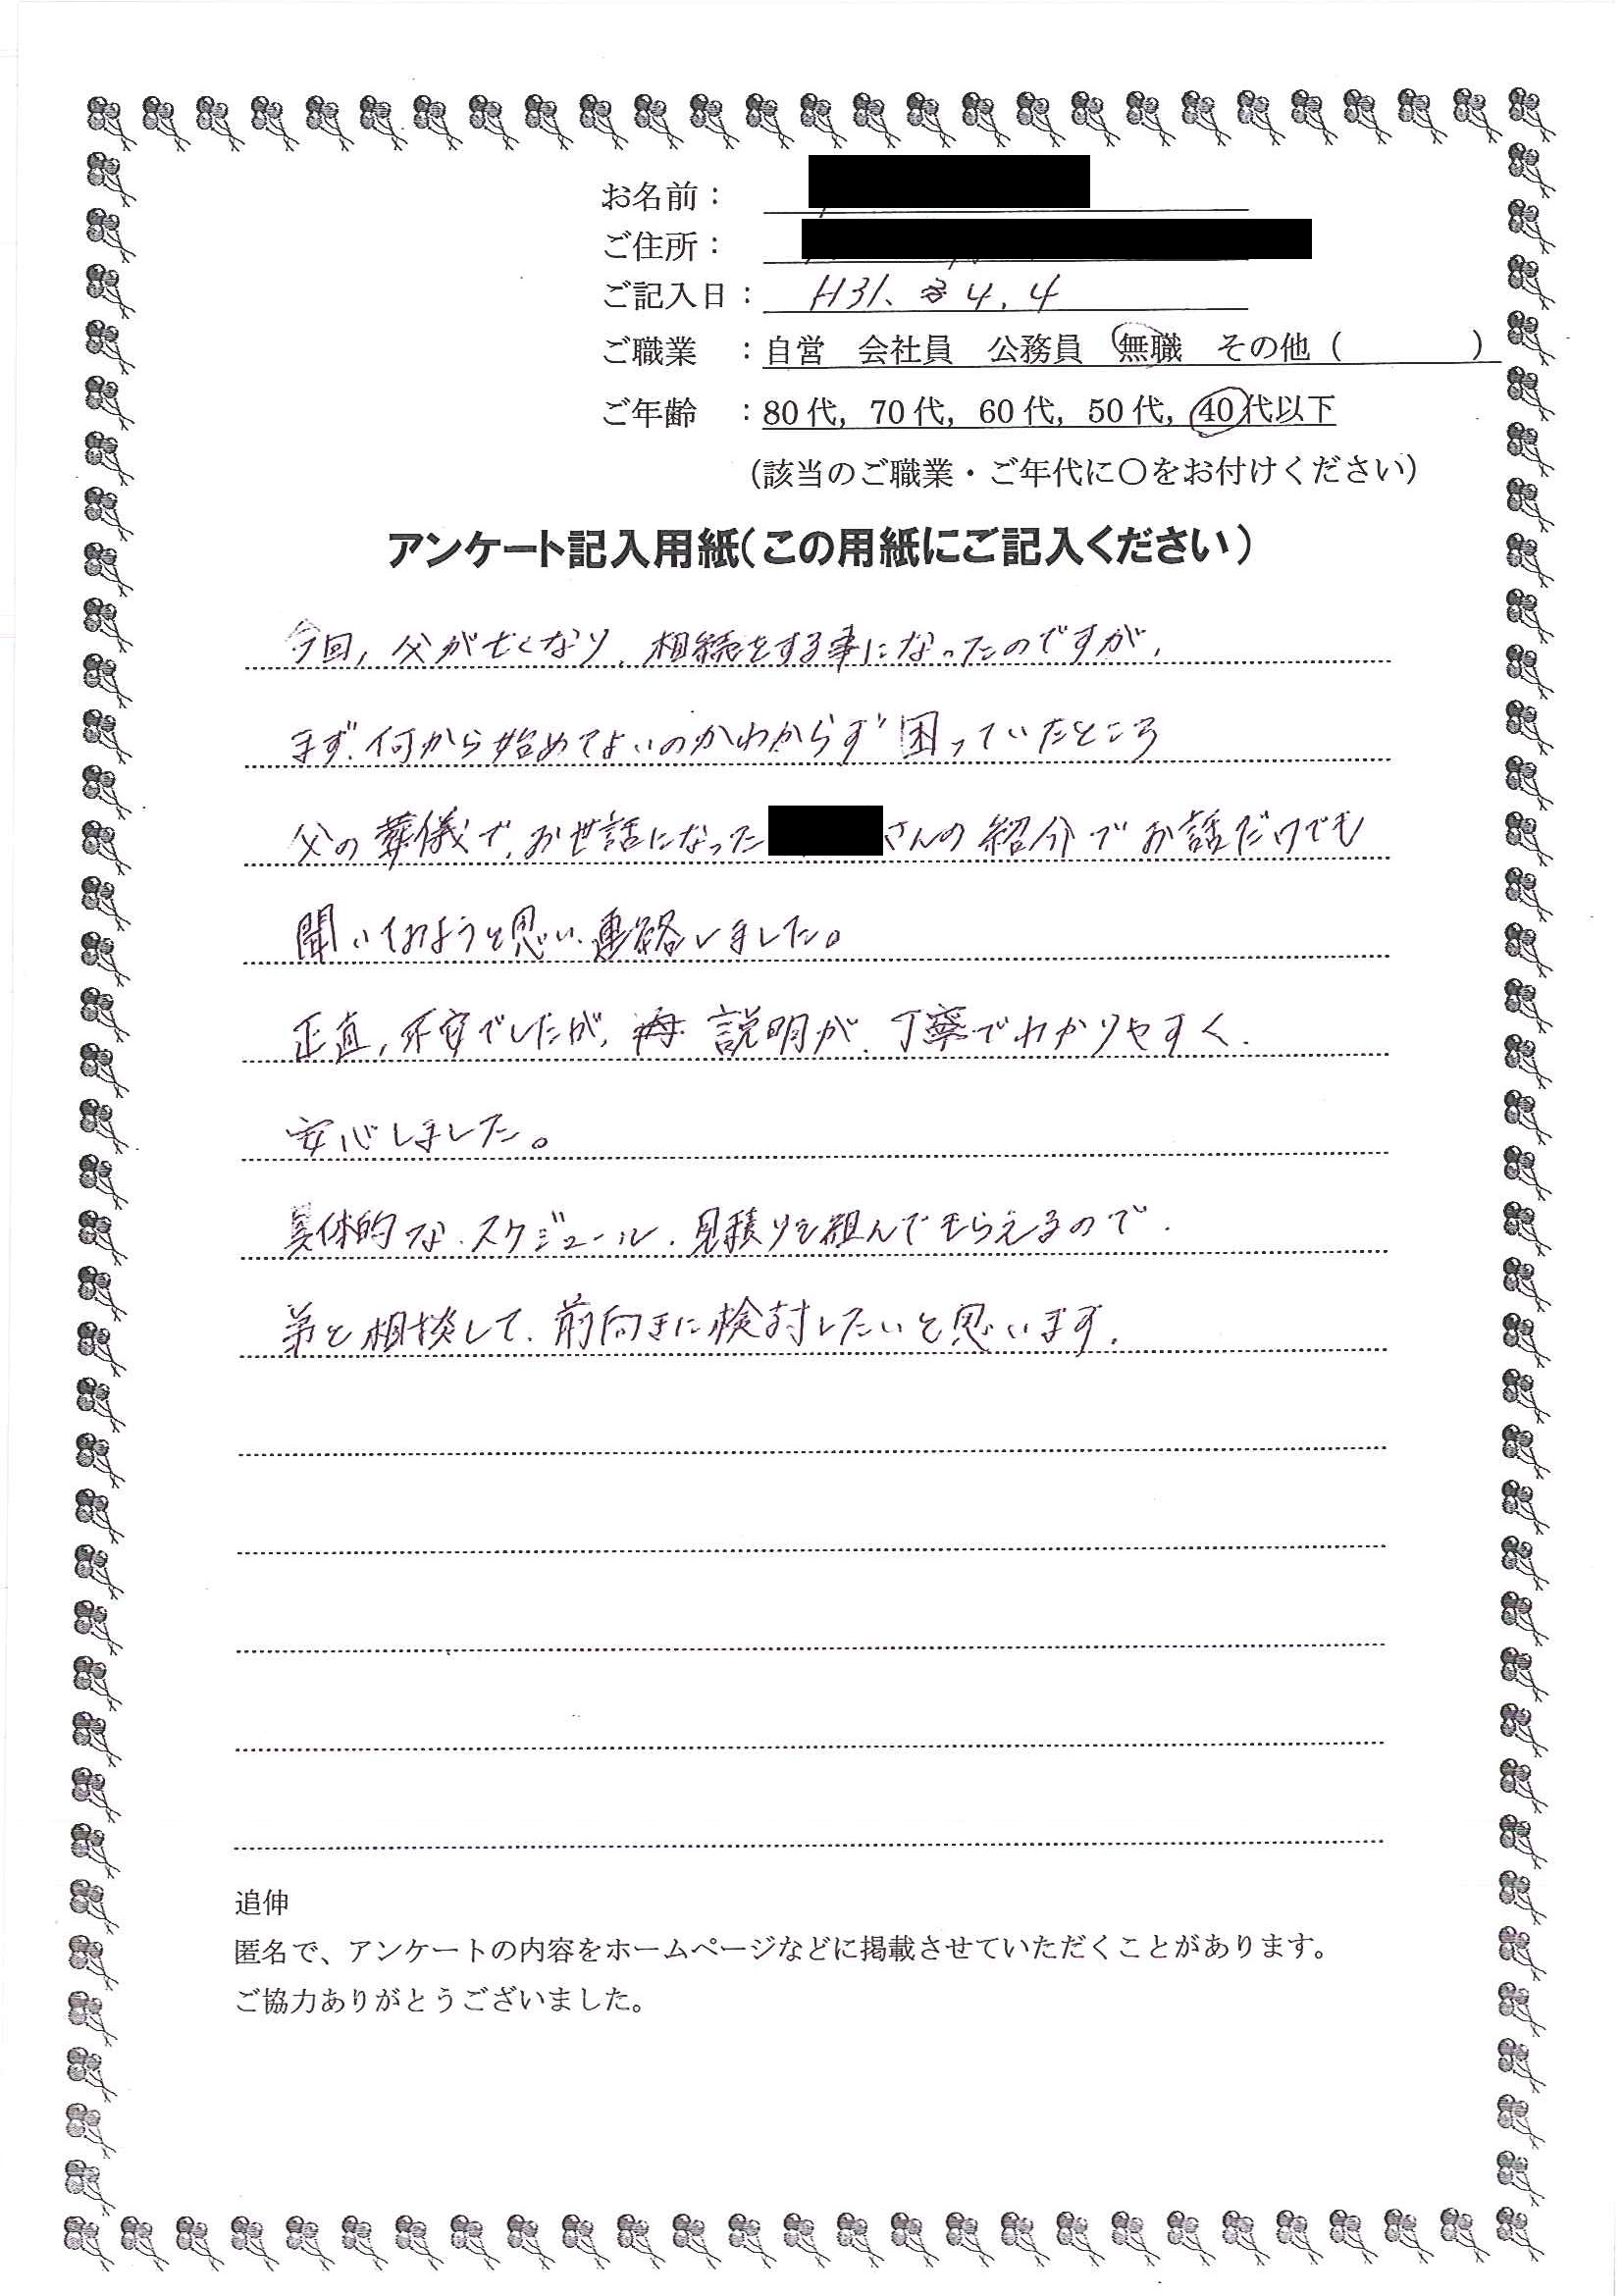 お名前：
ご住所：
ご記入日： H31. 4.4
ご職業 ：自営 会社員 公務員 無職 その他（ ）
ご年齢 ：80代，70代，60代，50代，40代以下
（該当のご職業・ご年代に〇をお付けください）
アンケート記入用紙（この用紙にご記入ください）
今回，父が亡くなり、相続をする事になったのですが，
まず、何から始めてよいのかわからず困っていたところ
父の葬儀で、お世話になった さんの紹介でお話だけでも
聞いておようと思い、連絡しました。
正直，不安でしたが， 説明が、丁寧でわかりやすく、
安心しました。
具体的な、スケジュール、見積りを組んでもらえるので、
弟と相談して、前向きに検討したいと思います．
追伸
匿名で、アンケートの内容をホームページなどに掲載させていただくことがあります。
ご協力ありがとうございました。